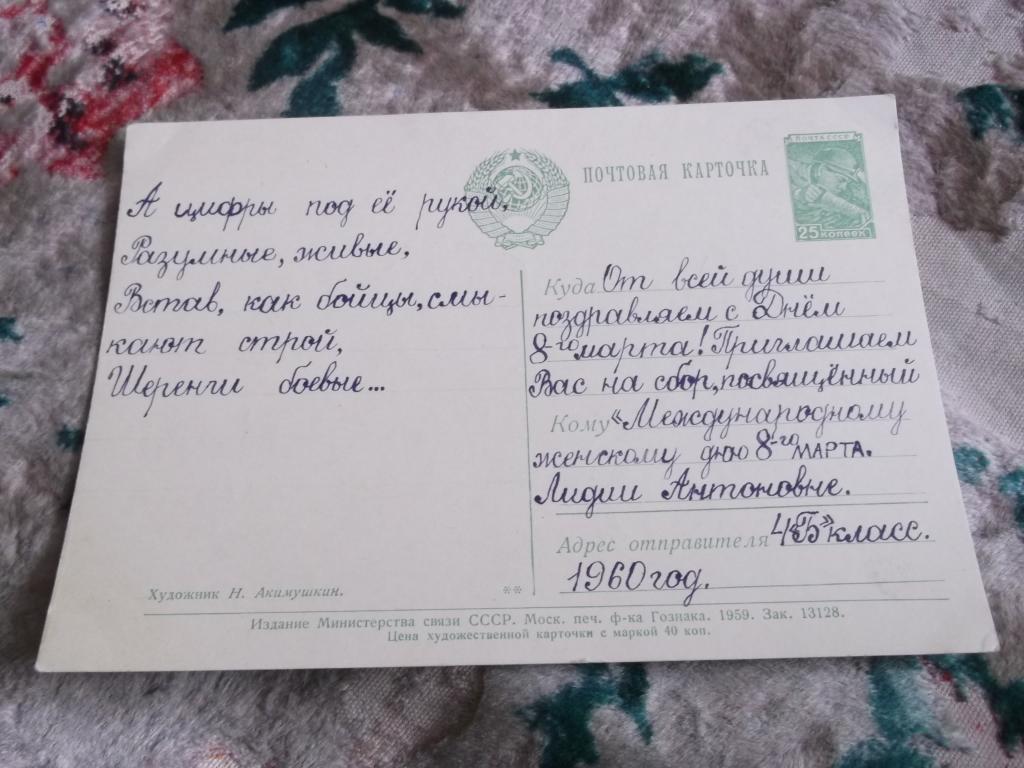 ПОЧТОВАЯ КАРТОЧКА
ПОЧТА СССР
25 КОПЕЕК
А цифры под её рукой,
Разумные, живые,
Встав, как бойцы, смы-
кают строй,
Шеренги боевые...
Куда От всей души
поздравляем с Днём
8-го марта! Приглашаем
Вас на сбор, посвящённый
Кому «Международному
женскому дню 8-го МАРТА.
Лидии Антоновне.
Адрес отправителя 4«Б» класс.
1960 год.
Художник Н. Акимушкин.
**
Издание Министерства связи СССР. Моск. печ. ф-ка Гознака. 1959. Зак. 13128.
Цена художественной карточки с маркой 40 коп.